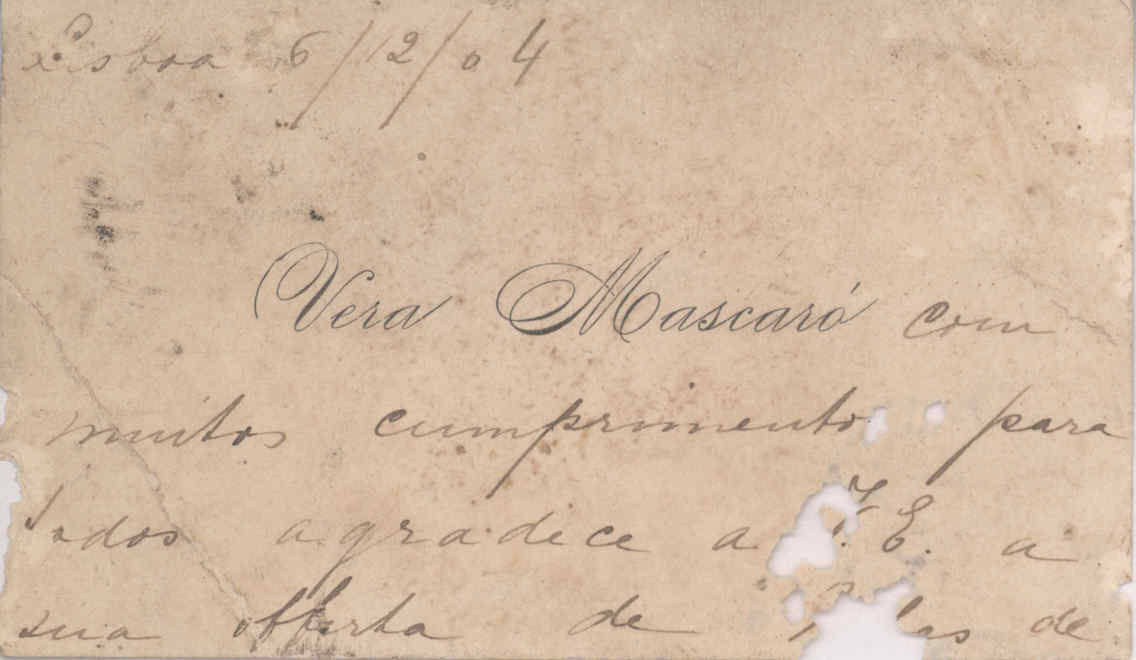 Lisboa 6/12/04
Vera Mascaró com
muitos cumprimentos para
todos agradece a V. E. a
sua offerta de de